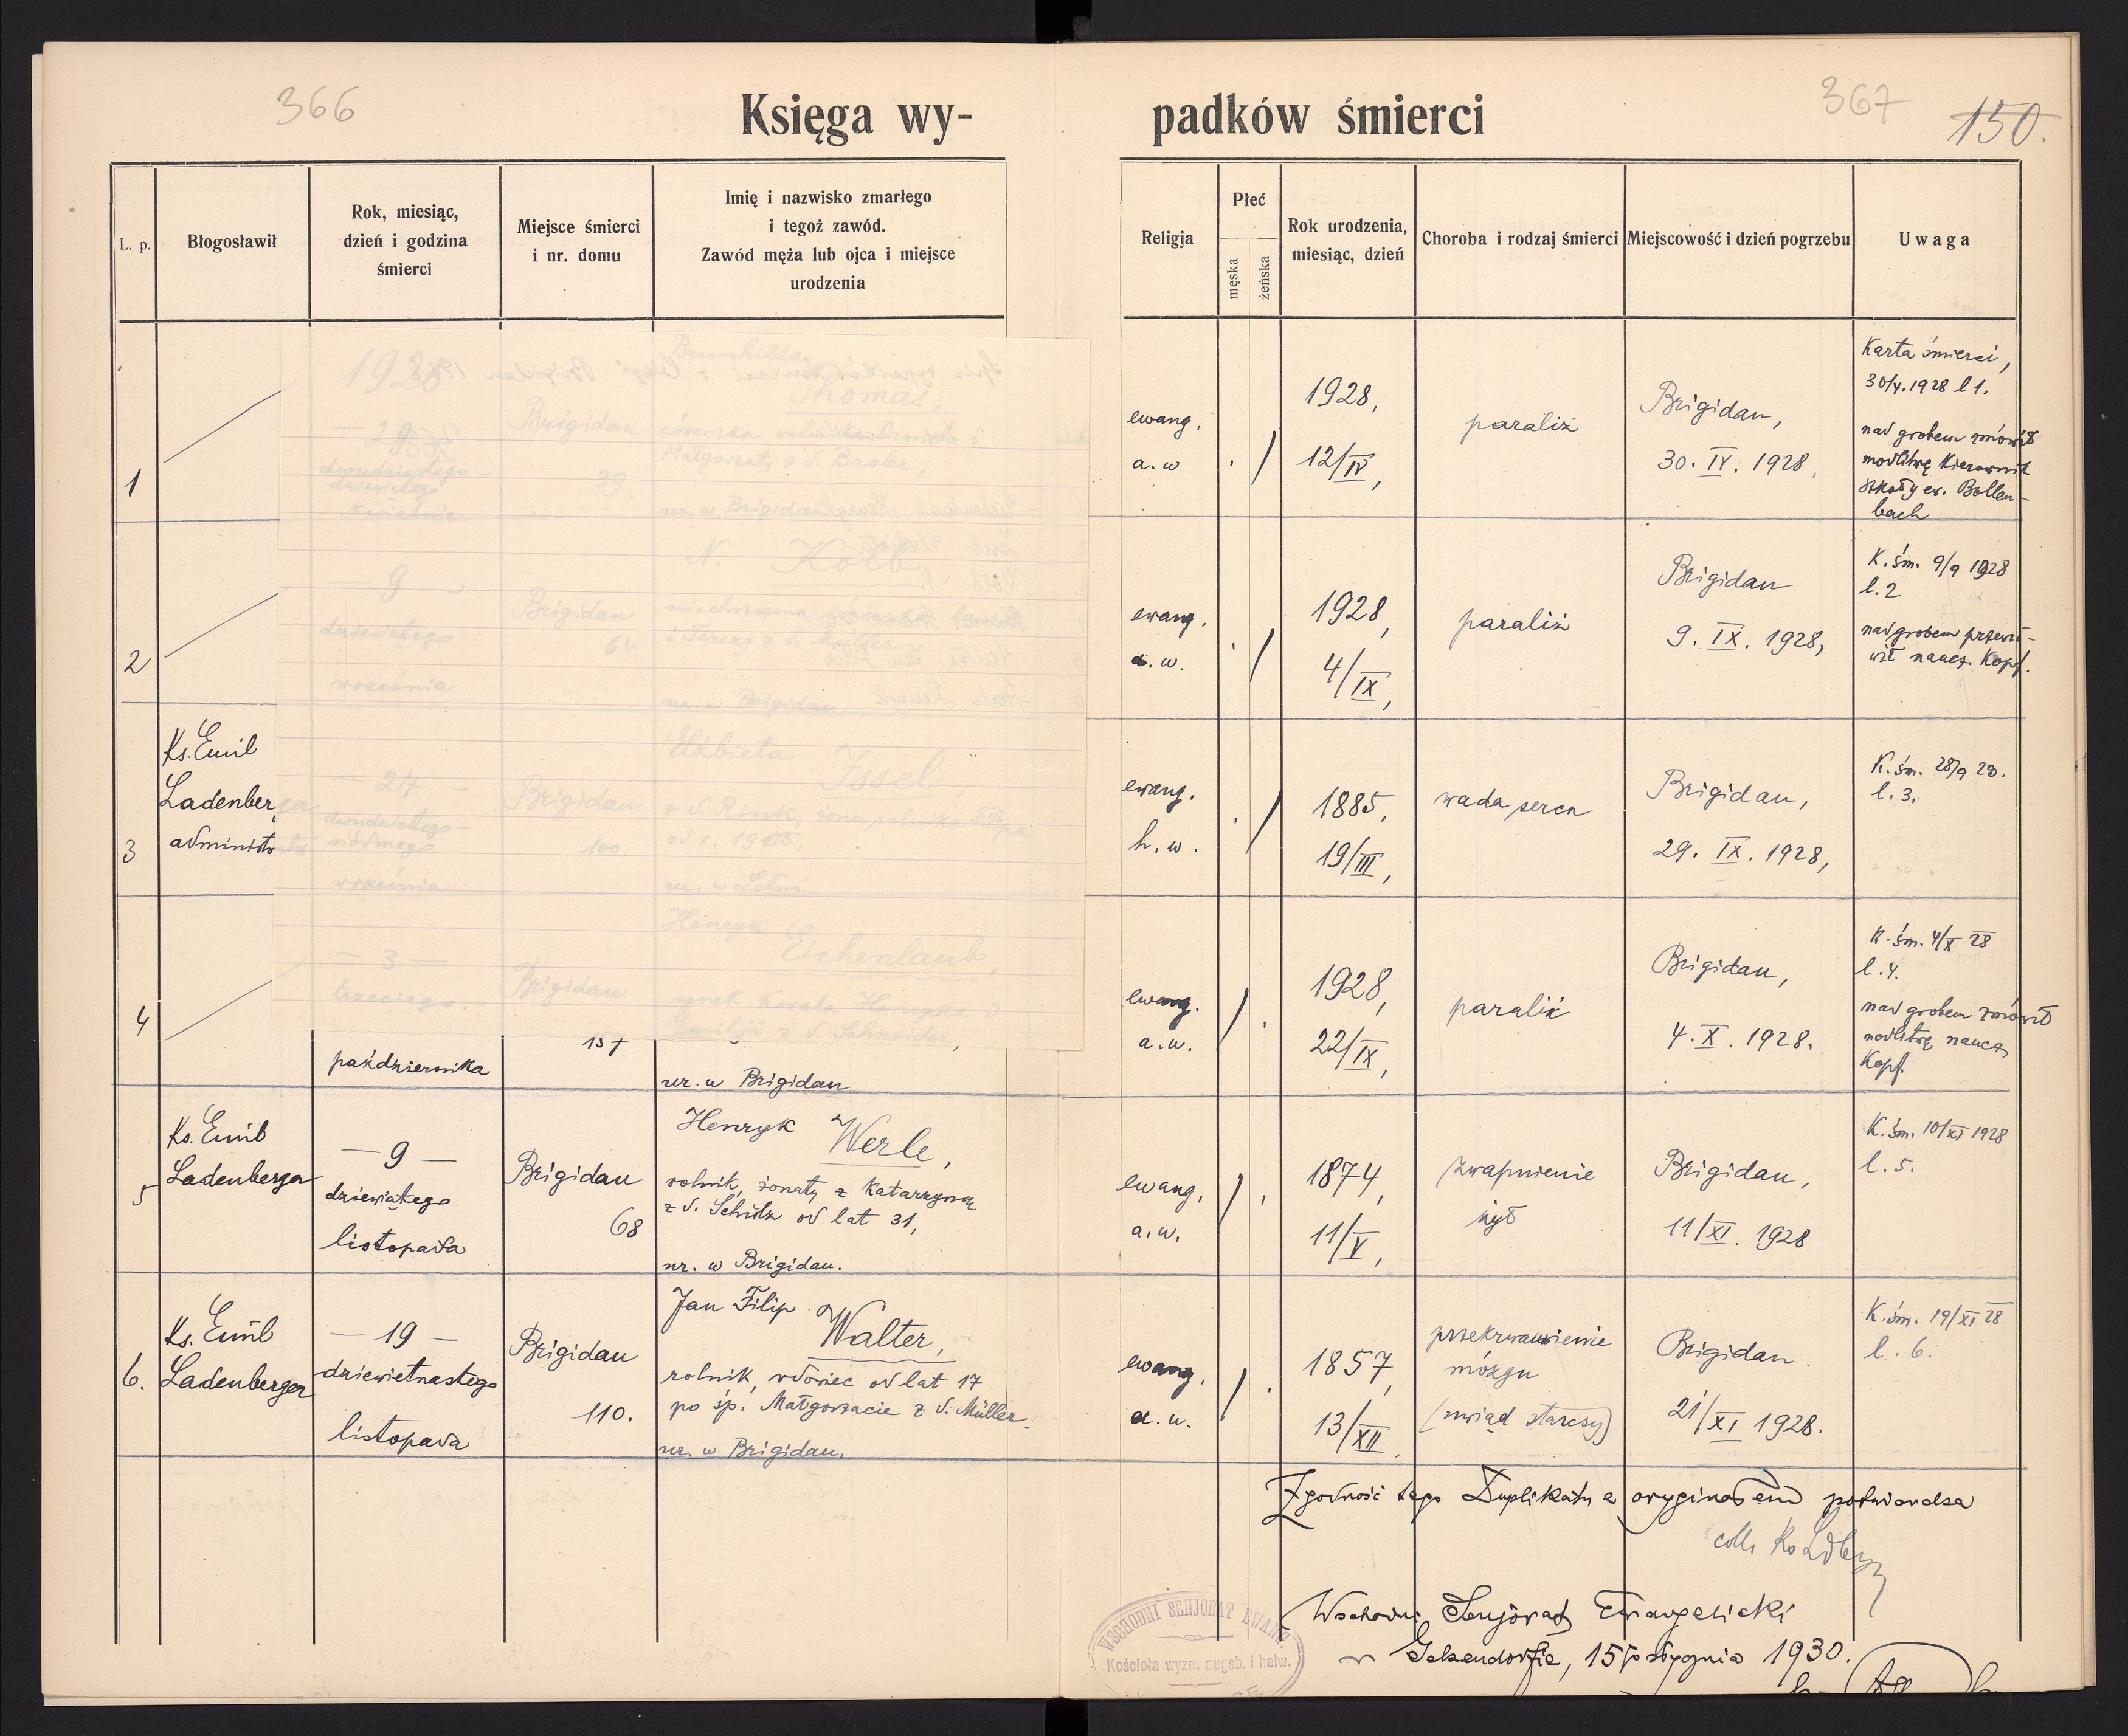 366
367
150.
Księga wy-
padków śmierci
L. p.
Błogosławił
Rok, miesiąc,
dzień i godzina
śmierci
Miejsce śmierci
i nr. domu
Imię i nazwisko zmarłego
i tegoż zawód.
Zawód męża lub ojca i miejsce
urodzenia
Religja
Płeć
męska
żeńska
Rok urodzenia,
miesiąc, dzień
Choroba i rodzaj śmierci
Miejscowość i dzień pogrzebu
Uwaga
1
1928
29
dwudziestego-
dziewiątego
kwietnia
Brigidau
39
Brunhilda
Thomas,
Małgorzaty z d. Basler
ur. w Brigidau
ewang.
a. w
. /
1928,
12/IV,
paraliż
Brigidau,
30. IV. 1928,
Karta śmierci,
30/4. 1928 l 1.
nad grobem zmówił
modlitwę Kierownik
szkoły ew. Bollen-
bach
2
9
dziewiątego
września
Brigidau
64.
N. Kolb
ur. w Brigidau
ewang.
a. w.
. /
1928,
4/IX,
paraliż
Brigidau
9. IX. 1928,
K. śm. 9/9 1928
l. 2
nad grobem przemó-
wił naucz. Kopf.
3
Ks. Emil
Ladenberger
administr
27
dwudziestego-
siódmego
września
Brigidau
100.
Elżbieta
Issel
z d. Rink, żona rolnika Filipa
ewang.
h. w.
. /
1885,
19/III,
wada serca
Brigidau,
29. IX. 1928,
K. śm. 28/9 28.
l. 3.
4
3
trzeciego
października
Brigidau
157
Henryk
Eichenlaub
synek Kowala Henryka i
Emilji z d. Schneider,
ur. w Brigidau
ewang.
a. w.
/ .
1928,
22/IX,
paraliż
Brigidau,
4. X. 1928.
K. śm. 4/X 28
l. 4.
nad grobem zmówił
modlitwę naucz.
Kopf.
5
Ks. Emil
Ladenberger
— 9 —
dziewiątego
listopada
Brigidau
68
Henryk Werle,
rolnik, żonaty z Katarzyną
z d. Schulz od lat 31,
ur. w Brigidau.
ewang.
a. w.
/ .
1874,
11/V,
zwapnienie
żył
Brigidau,
11/XI. 1928
K. śm. 10/XI 1928
l. 5.
6.
Ks. Emil
Ladenberger
— 19 —
dziewiętnastego
listopada
Brigidau
110.
Jan Filip
Walter,
rolnik, wdowiec od lat 17
po śp. Małgorzacie z d. Müller.
ur. w Brigidau.
ewang.
a. w.
/ .
1857,
13/XII.
przekrwawienie
mózgu
(uwiąd starczy)
Brigidau.
21/XI 1928.
K. śm. 19/XI 28
l. 6.
Zgodność tego Duplikatu z oryginałem potwierdza
Wschodni Senjorat Ewangelicki
w Gelsendorfie, 15 stycznia 1930.
WSCHODNI SENJORAT EWANG.
Kościoła wyzn. augsb. i helw.